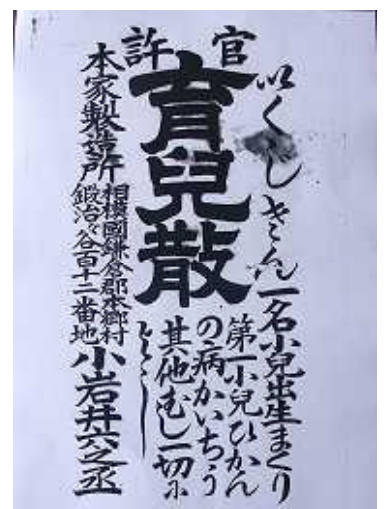 官許
いくしさん一名小兒出生まくり
育兒散
第一小兒ひかん
の病かいちう
其他むし一切に
本家製造所
相模國鎌倉郡本郷村
鍛冶ヶ谷百十二番地
小岩井六之丞